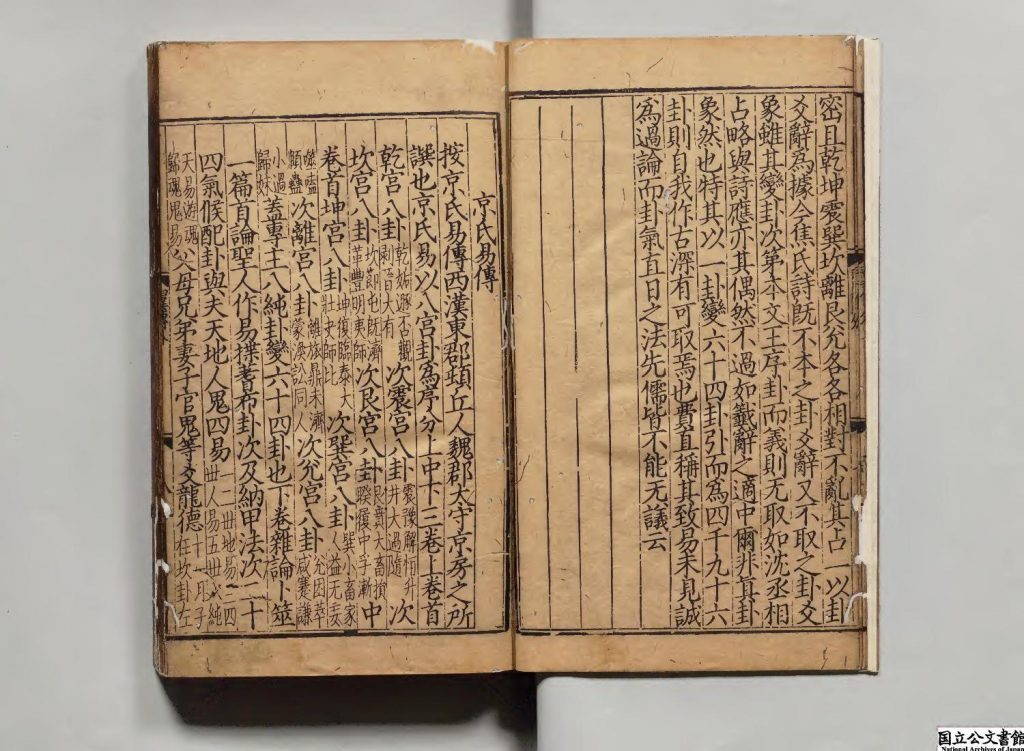 密且乾坤震巽坎離艮兌各各相對不亂其占一以卦
爻辭為據今焦氏詩既不本之卦爻辭又不取之卦爻
象雖其變卦次第本文王序卦而義則无取如沈丞相
占略與詩應亦其偶然不過如籤辭之適中爾非真卦
象然也特其以一卦變六十四卦引而為四千九十六
卦則自我作古深有可取焉也費直稱其致易未見誠
為過論而卦氣直日之法先儒皆不能无議云
京氏易傳
按京氏易傳西漢東郡頓丘人魏郡太守京房之所
譔也京氏易以八宮卦為序分上中下三卷上卷首
乾宮八卦乾姤遯否觀剝晉大有次震宮八卦震豫解恒升井大過隨次
坎宮八卦坎節屯既濟革豐明夷師次艮宮八卦艮賁大畜損睽履中孚漸中
卷首坤宮八卦坤復臨泰大壯夬需比次巽宮八卦巽小畜家人益无妄
噬嗑頤蠱次離宮八卦離旅鼎未濟蒙渙訟同人次兌宮八卦兌困萃咸蹇謙
小過歸妹蓋專主八純卦變六十四卦也下卷雜論卜筮
一篇首論聖人作易揲蓍布卦次及納甲法次二十
四氣候配卦與夫天地人鬼四易一世二世地易三四世人易五世八純
天易遊魂歸魂鬼易父母兄弟妻子官鬼等爻龍德十一月子在坎卦左
国立公文書館
National Archives of Japan